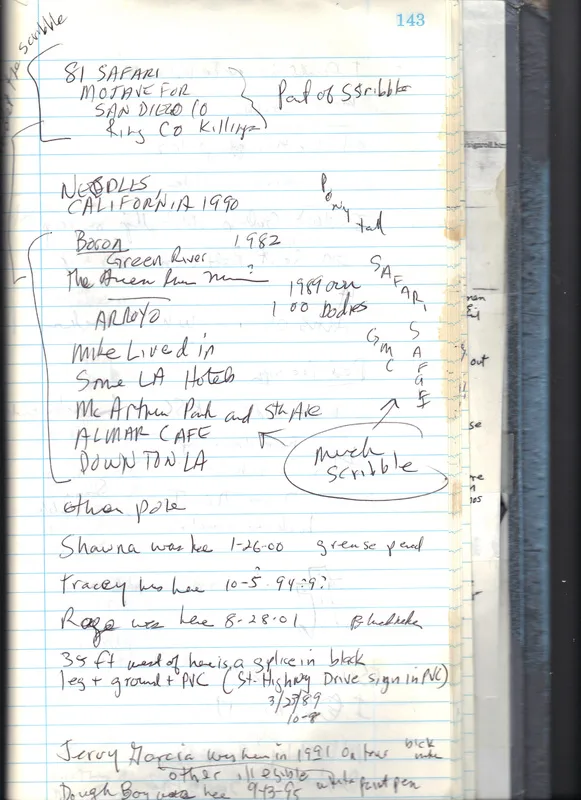 143
81 SAFARI
MOJAVE FOR
SAN DIEGO CO
King Co Killings
Part of Sscribble
NEEDLES,
CALIFORNIA 1990
Pony tail
Bacon 1982
Green River
the Green River
1989 over
100 bodies
ARROYO
SAFARI
GMC
SAFARI
Mike Lived in
Some LA Hotels
McArthur Park and 5th Ave
ALMAR CAFE
DOWNTOWN LA
much
scribble
other pole
Shawna was here 1-26-00 grease pencil
Tracey was here 10-5 94?9?
was here 8-28-01
35 ft west of here is a splice in black
leg + ground + PVC (St-Highway Drive sign in PVC)
3/27/89
Jerry Garcia was here in 1991 On tour
other illegible white paint pen
Dough Boy was here 9-13-95